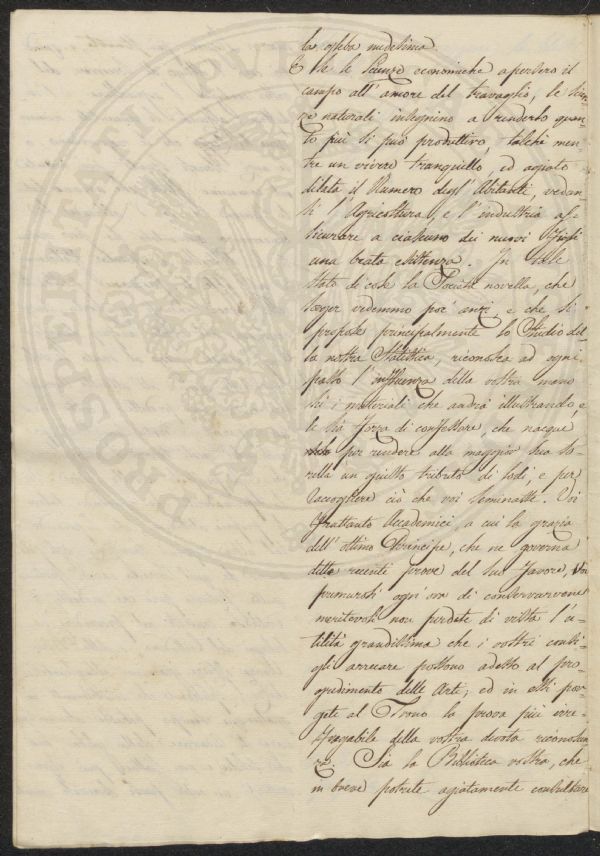 la ossba medesima.
E se le Scienze economiche apersero il
campo all'amore del travaglio, le Scien
ze naturali insegnino a renderlo quan-
to più si può produttivo, talchè men
tre un vivere tranquillo, ed agiato
dilata il Numero degl'Abitanti, vedan
si l'Agricoltura, e l'industria as-
sicurare a ciascuno dei nuovi Ospiti
una beata esistenza. In tale
stato di cose la Società novella, che
sorger vedemmo poc'anzi, e che si
propose principalmente lo Studio del-
la nostra Statistica, riconosca ad ogni
passo l'influenza della vostra mano
su i materiali che andrà illustrando, e
le sia forza di confessare, che nacque
solo per rendere alla maggior sua So-
rella un giusto tributo di lodi, e per
raccogliere ciò che voi seminaste. Voi
frattanto Accademici, a cui la grazia
dell'ottimo Principe, che ne governa
dette recenti prove del suo favore, Voi
premurosi ogni ora di conservarvene
meritevoli non perdete di vista l'u-
tilità grandissima che i vostri consi-
gli arrecare possono adesso al pro-
gredimento delle Arti; ed in essi por-
gete al Trono la prova più irre-
fragabile della vostra divota riconoscen
za. Sia la Biblioteca vostra, che
in breve potrete agiatamente consultare
PROSPERITÀ